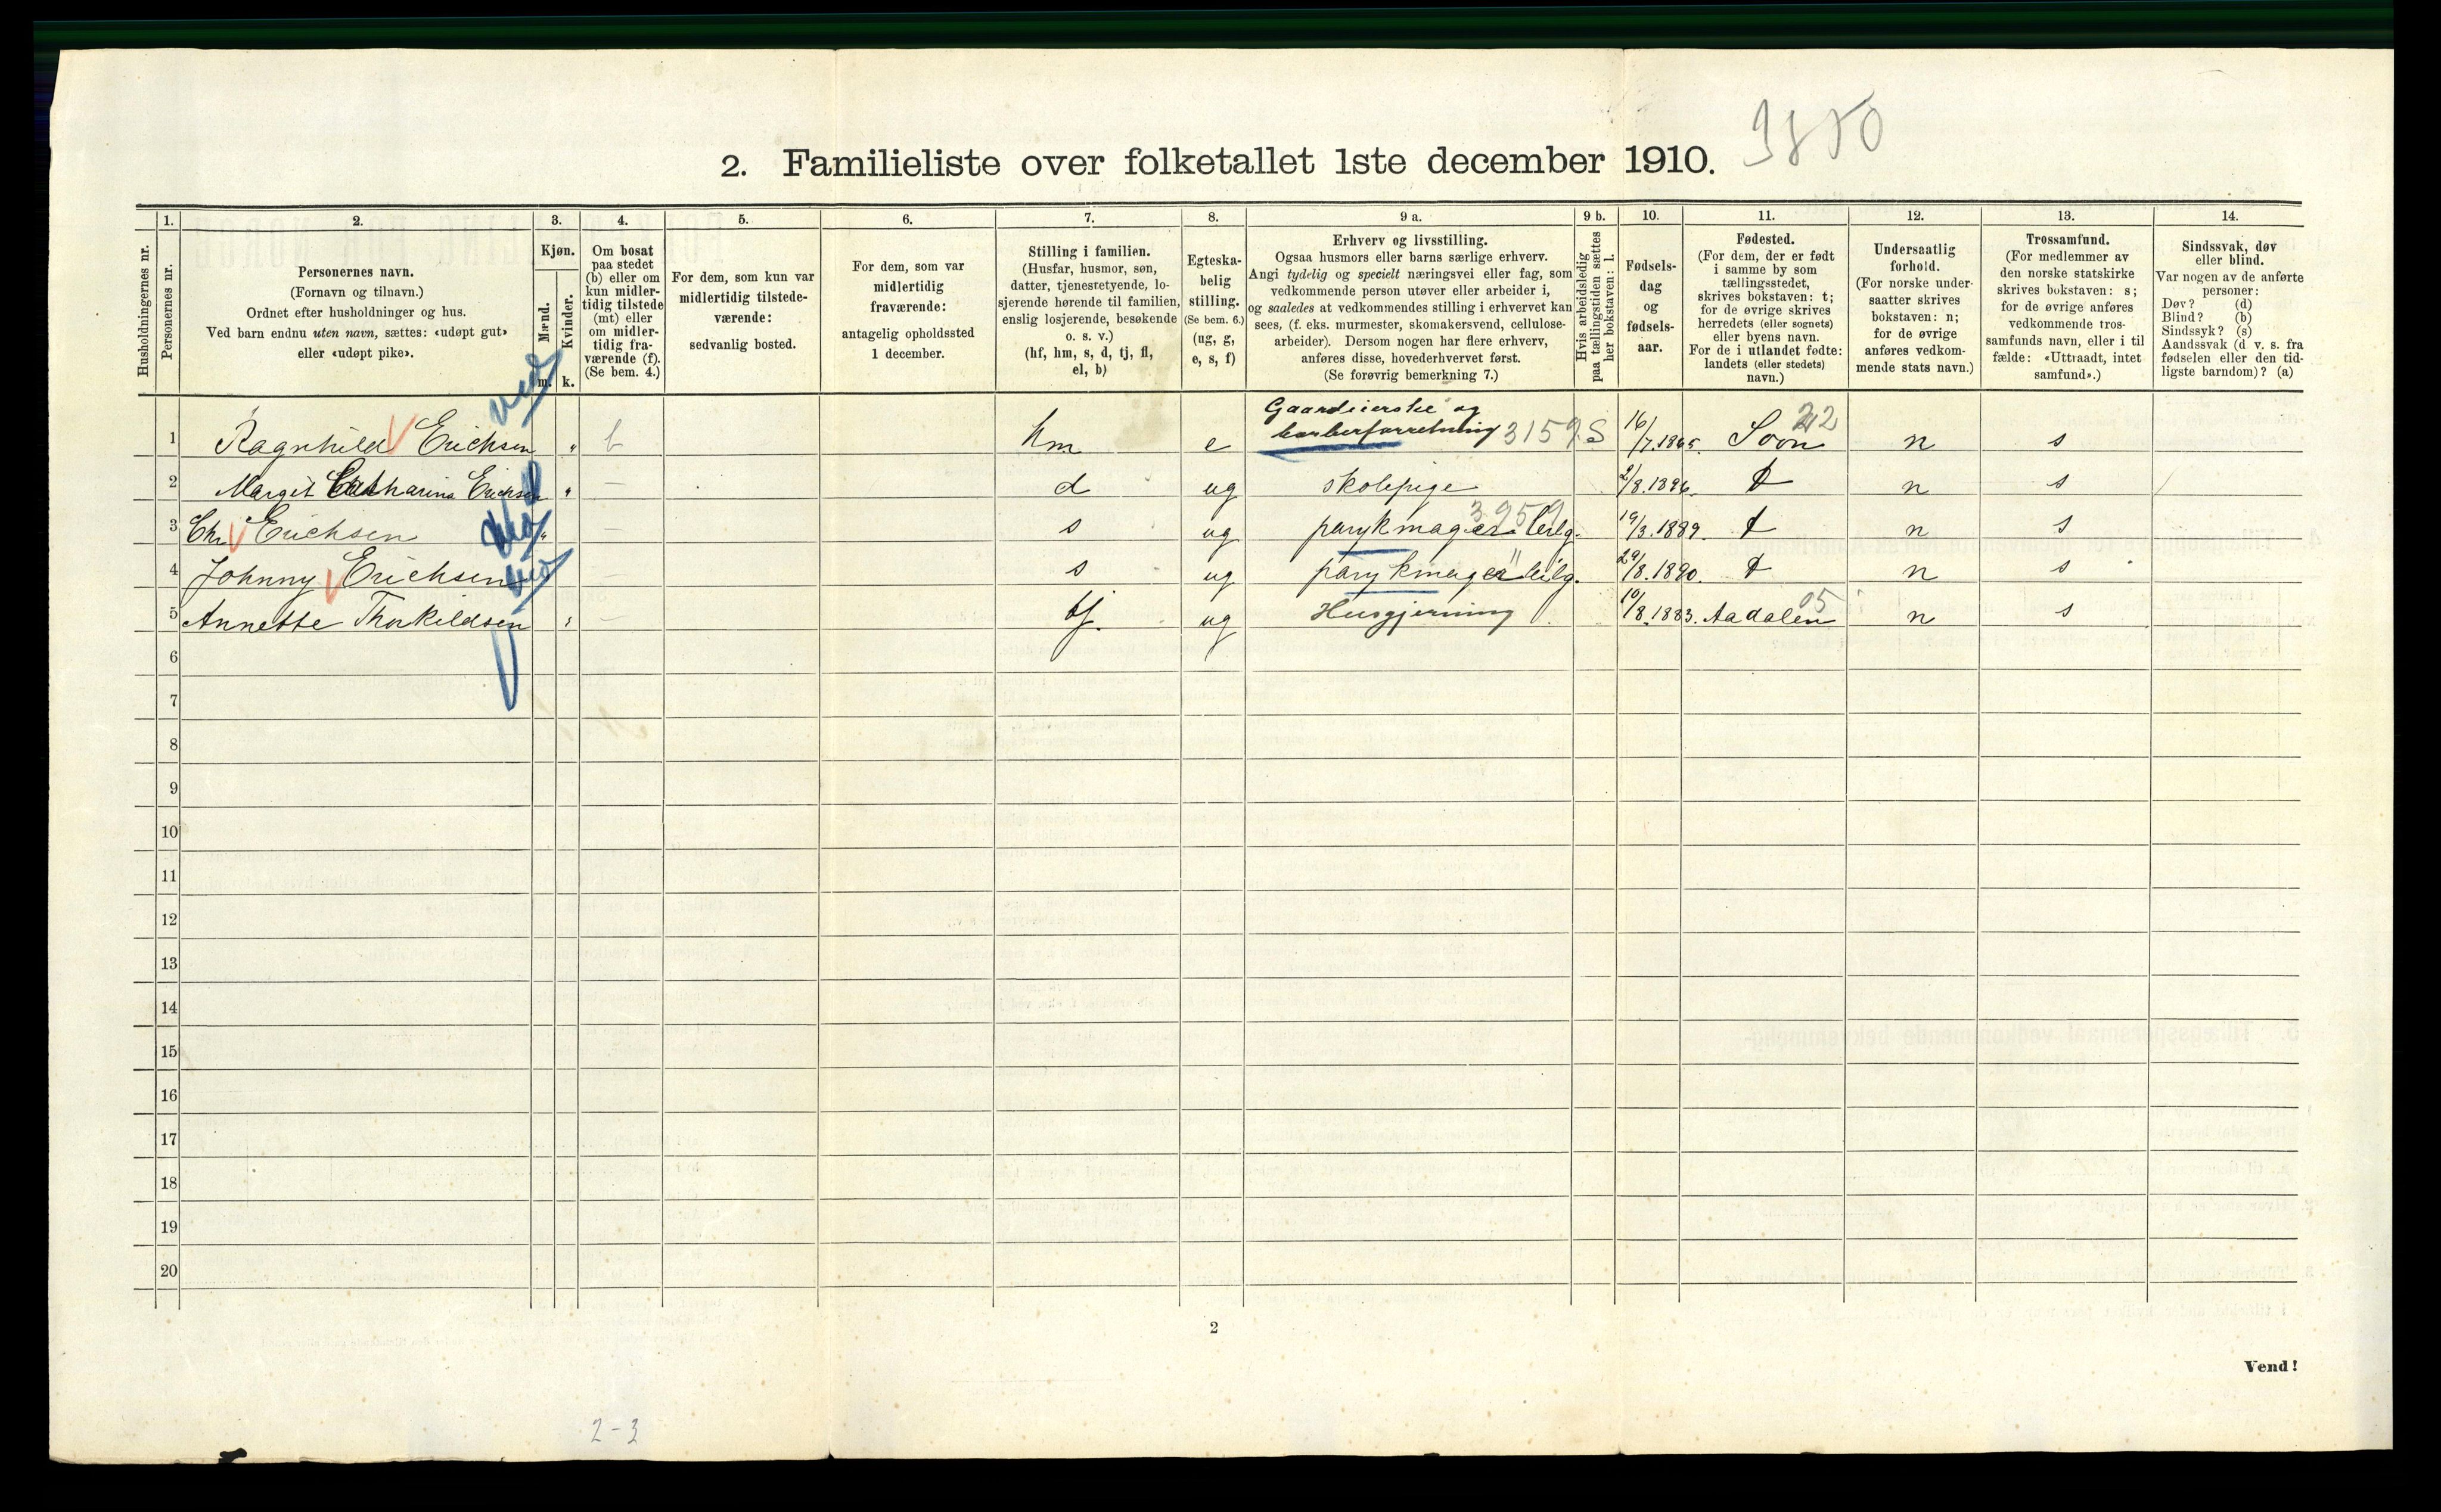 3850
2. Familieliste over folketallet 1ste december 1910.
Husholdningernes nr.
1.
Personernes nr.
2.
Personernes navn.
(Fornavn og tilnavn.)
Ordnet efter husholdninger og hus.
Ved barn endnu uten navn, sættes: «udøpt gut»
eller «udøpt pike».
3.
Kjøn.
Mænd.
Kvinder.
m. k.
4.
Om bosat
paa stedet
(b) eller om
kun midler-
tidig tilstede
(mt) eller
om midler-
tidig fra-
værende (f).
(Se bem. 4.)
5.
For dem, som kun var
midlertidig tilstede-
værende:
sedvanlig bosted.
6.
For dem, som var
midlertidig
fraværende:
antagelig opholdssted
1 december.
7.
Stilling i familien.
(Husfar, husmor, søn,
datter, tjenestetyende, lo-
sjerende hørende til familien,
enslig losjerende, besøkende
o. s. v.)
(hf, hm, s, d, tj, fl,
el, b)
8.
Egteska-
belig
stilling.
(Se bem. 6.)
(ug, g,
e, s, f)
9 a.
Erhverv og livsstilling.
Ogsaa husmors eller barns særlige erhverv.
Angi tydelig og specielt næringsvei eller fag, som
vedkommende person utøver eller arbeider i,
og saaledes at vedkommendes stilling i erhvervet kan
sees, (f. eks. murmester, skomakersvend, cellulose-
arbeider). Dersom nogen har flere erhverv,
anføres disse, hovederhvervet først.
(Se forøvrig bemerkning 7.)
9 b.
Hvis arbeidsledig
paa tællingstiden sættes
her bokstaven: l.
10.
Fødsels-
dag
og
fødsels-
aar.
11.
Fødested.
(For dem, der er født
i samme by som
tællingsstedet,
skrives bokstaven: t;
for de øvrige skrives
herredets (eller sognets)
eller byens navn.
For de i utlandet fødte:
landets (eller stedets)
navn.)
12.
Undersaatlig
forhold.
(For norske under-
saatter skrives
bokstaven: n;
for de øvrige
anføres vedkom-
mende stats navn.)
13.
Trossamfund.
(For medlemmer av
den norske statskirke
skrives bokstaven: s;
for de øvrige anføres
vedkommende tros-
samfunds navn, eller i til
fælde: «Uttraadt, intet
samfund».)
14.
Sindssvak, døv
eller blind.
Var nogen av de anførte
personer:
Døv? (d)
Blind? (b)
Sindssyk? (s)
Aandssvak (d v. s. fra
fødselen eller den tid-
ligste barndom)? (a)
Gaardeierske og
1 Ragnhild Erichsen " b hm e barberforretning 3159 S 16/7.1865. Soon 22 n s
2 Margit Catharina Erichsen " — d ug skolepige 2/8.1896. t n s
3 Chr Erichsen " — s ug parykmager leilg. 3959 19/3.1889. t n s
4 Johnny Erichsen — s ug parykmager " leilg. 29/8.1890. t n s
5 Annette Thorkildsen " — tj. ug Husgjerning 10/8.1883. Aadalen 05 n s
6
7
8
9
10
11
12
13
14
15
16
17
18
19
20
2
Vend!
2-3